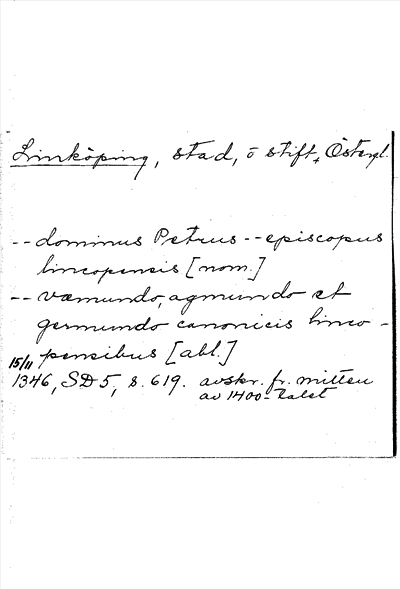 Linköping, stad, o stift, Östergl.
-- dominus Petrus -- episcopus
lincopensis [nom.]
-- væmundo, agmundo et
germundo canonicis linco-
pensibus [abl.]
15/11
1346, SD 5, s. 619. avskr. fr. mitten
av 1400-talet